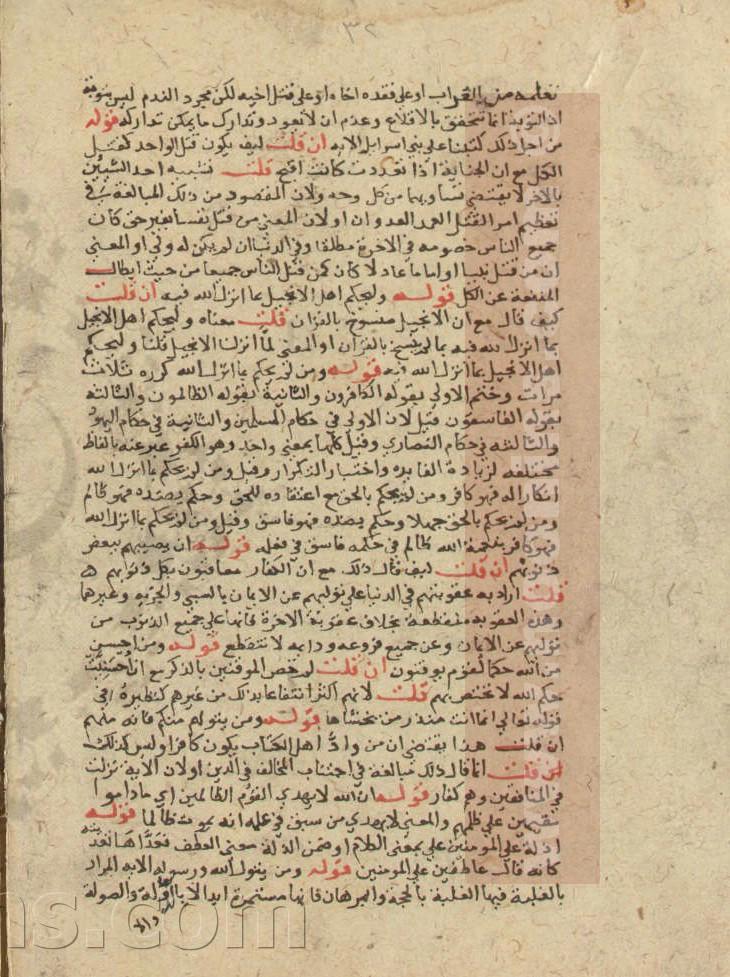 ٣٢
نعلمه من الغراب او على فقده اخاه او على قتل اخيه لكن مجرد الندم ليس بتوبة
اذ التوبة انما تتحقق بالاقلاع وعدم ان لا يعود وتدارك ما يمكن تداركه قوله
من اجل ذلك كتبنا على بني اسرايل الاية ان قلت كيف يكون قتل الواحد كقتل
الكل مع ان الجناية اذا تعددت كانت اقبح قلت تشبيه احد الشيئين
بالاخر لا يقتضي تساويهما من كل وجه ولان المقصود من ذلك المبالغة في
تعظيم امر القتل العمد العدوان او لان المعنى من قتل نفسا بغير حق كان
جميع الناس خصومه في الاخرة مطلقا وفي الدنيا ان لم يكن له ولي او المعنى
ان من قتل نبيا او اماما عادلا كان كمن قتل الناس جميعا من حيث ابطال
المنفعة عن الكل قوله وليحكم اهل الانجيل بما انزل الله فيه ان قلت
كيف قال مع ان الانجيل منسوخ بالقران قلت معناه وليحكم اهل الانجيل
بما انزل الله فيه بما لم ينسخ بالقران او المعنى لما انزلنا الانجيل قلنا وليحكم
اهل الانجيل بما انزل الله فيه قوله ومن لم يحكم بما انزل الله كرره ثلاث
مرات وختم الاولى بقوله الكافرون والثانية بقوله الظالمون والثالثة
بقوله الفاسقون قيل لان الاولى في حكام المسلمين والثانية في حكام اليهود
والثالثة في حكام النصارى وقيل كلها بمعنى واحد وهو الكفر عبر عنه بالفاظ
مختلفه لزيادة الفايدة واختيار التكرار وقيل ومن لم يحكم بما انزل الله
انكارا له فهو كافر ومن لم يحكم بالحق مع اعتقاده للحق وحكم بضده فهو ظالم
ومن لم يحكم بالحق جهلا وحكم بضده فهو فاسق وقيل ومن لم يحكم بما انزل الله
فهو كافر بنعمة الله ظالم في حكمه فاسق في فعله قوله ان يصيبهم ببعض
ذنوبهم ان قلت كيف قال ذلك مع ان الكفار معاقبون بكل ذنوبهم
قلت اراد به عقوبتهم في الدنيا على توليهم عن الايمان بالسبي والجزية وغيرها
وهذه العقوبة منقطعة بخلاف عقوبة الاخرة فانها على جميع الذنوب من
توليهم عن الايمان وعن جميع فروعه ودايمه لا تنقطع قوله ومن احسن
من الله حكما لقوم يوقنون ان قلت لم خص الموقنين بالذكر مع ان احسنية
حكم الله لا تختص بهم قلت لانهم اكثر انتفاعا بذلك من غيرهم كنظيره في
قوله تعالى انما انت منذر من يخشاها قوله ومن يتولهم منكم فانه منهم
ان قلت هذا يقتضي ان من واد اهل الكتاب يكون كافرا وليس كذلك
قلت انما قال ذلك مبالغة في اجتناب المخالف في الدين او لان الاية نزلت
في المنافقين وهم كفار قوله ان الله لا يهدي القوم الظالمين اي ما داموا
مقيمين على ظلمهم والمعنى لا يهدي من سبق في علمه انه يموت ظالما قوله
اذلة على المومنين على بمعنى اللام او ضمن الذلة معنى العطف فعداها تعديته
كانه قال عاطفين على المومنين قوله ومن يتول الله ورسوله الاية المراد
بالغلبة فيها الغلبة بالحجة والبرهان فانها مستمرة ابدا لا بالدولة والصولة
والا